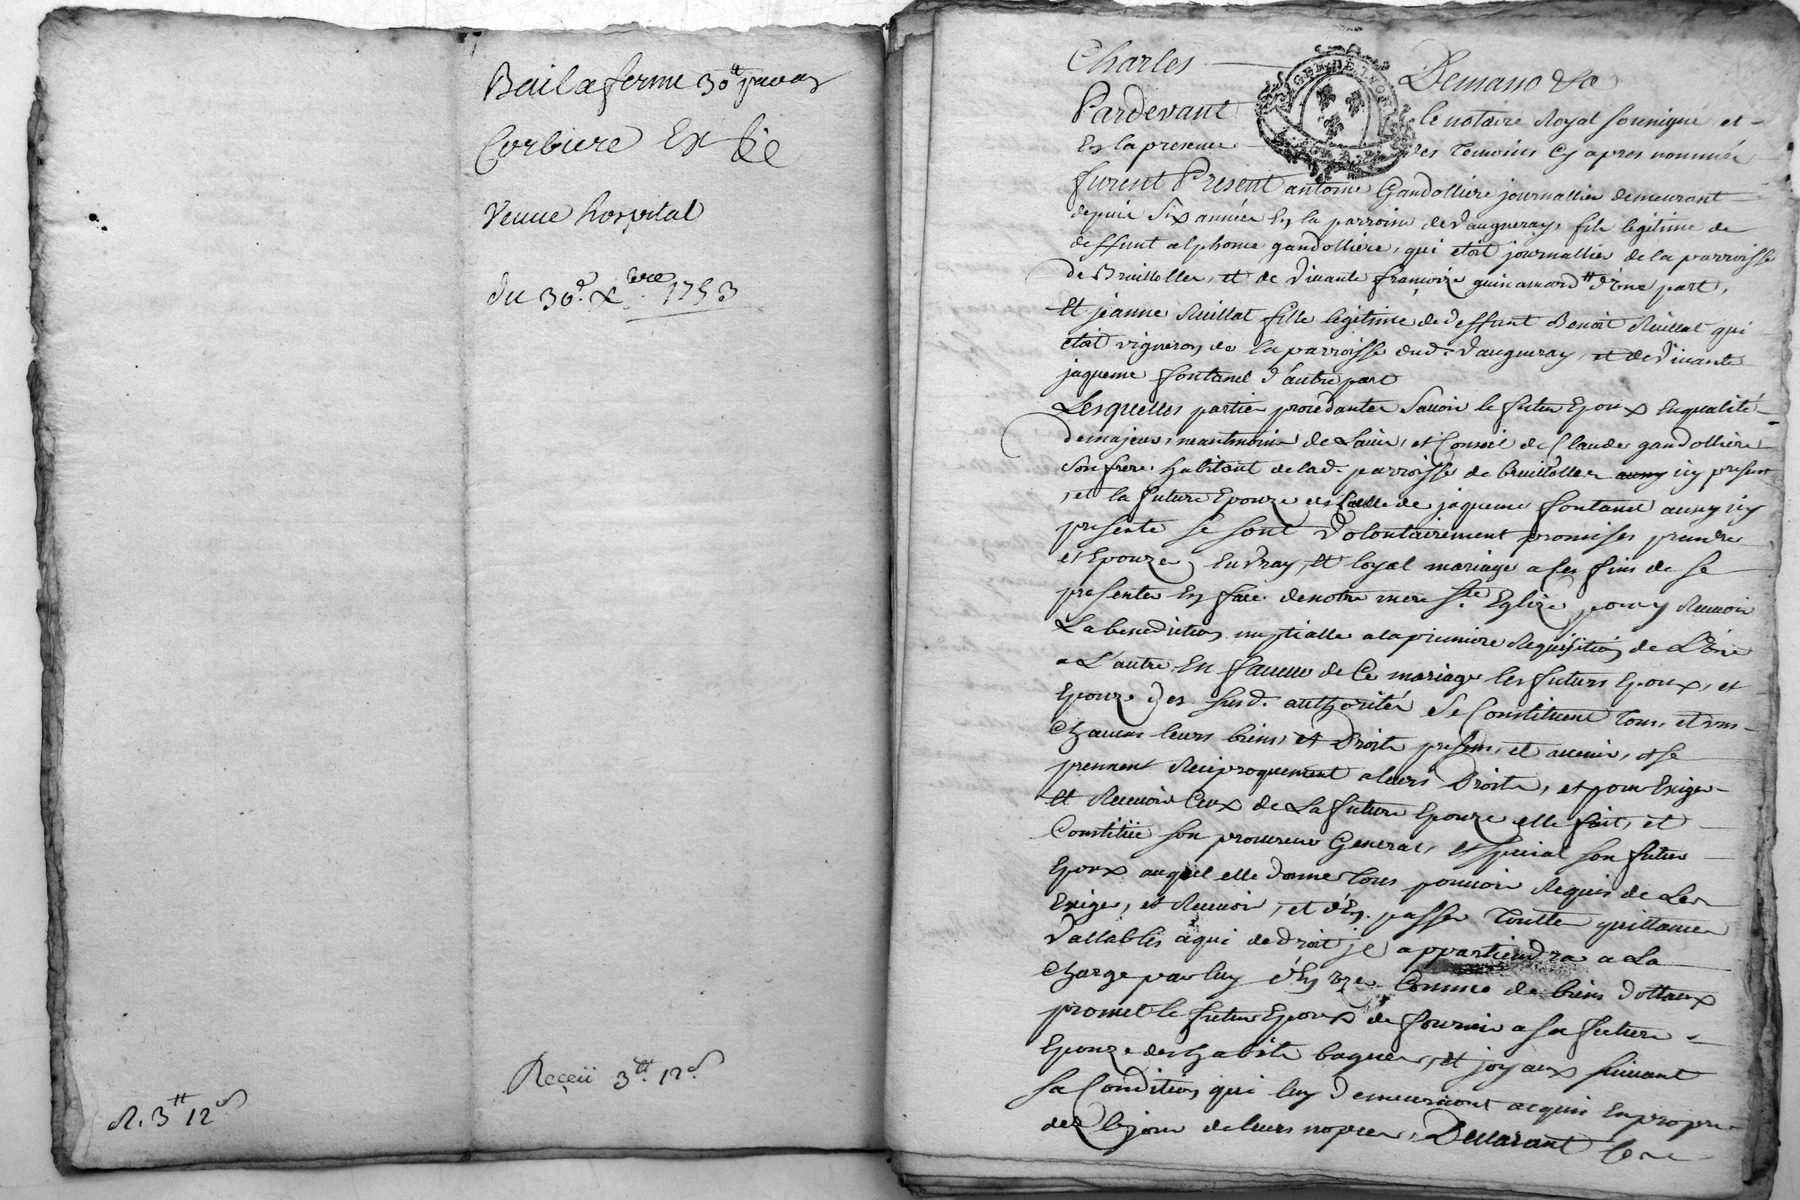 Bail a ferme 30tt
Corbiere Ex
Veuue hospital
du 30e Xbre 1753
Reçeü 3tt 12s
R. 3tt 12s
Charles
Pardevant le notaire Royal sousigne et
En la presence des Temoins Cy apres nommés
furent Present antoine Gandolliere journallier demeurant
depuis Six année En la parroisse de Vaugneray, fils legitime de
deffunt alphonse gandolliere, qui etoit journallier de la parroisse
de Bruillolles, et de Vivante françoise guinamard d'Une part,
Et jeanne Ruillat fille legitime de deffunt Benoit Ruillat qui
etoit vigneron de la parroisse dud. Vaugneray, et de Vivante
jaqueme fontanel d'autre part
Lesquelles partie procedantes Sauoir le futur Epoux En qualité
de majeur, neantmoins de Lauis, et Conseil de Claude gandolliere
Son frere habitant de lad. parroisse de bruillolles icy present
, et la future Epouze de Celle de jaqueme fontanel aussy icy
presente se sont Volontairement promises prendre
et Epouzer En Vray, et loyal mariage a ses fins de se
presenter En face de notre mere Ste Eglize pour y Receuoir
La benediction nuptialle a la premiere Requisition de L'Une
a L'autre, En faueur de Ce mariage les futurs Epoux, et
Epouze des susd. authorités Se Constituent Tous, et uns
Chacuns leurs biens, et Droits presens, et auenir, et se
prennent Reciproquement a leurs Droits, et pour Exiger
Et Receuoir Ceux de La future Epouze elle fait, et
Constitüe son procureur General, et special son futur
Epoux auquel elle donne Tous pouuoir Requis de Les
Exiger, et Receuoir, et d'En passer Toutte quittances
Vallables a qui de droit il appartiendra a La
Charge par luy d'En Comme de biens dottaux
promet le futur Epoux de fournir a sa future
Epouze des habits bagues, et joyaux suiuant
sa Condition, qui luy demeureront acquis En propre
dez le jour de leurs nopces, Declarant